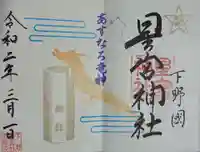 下野國
星宮神社
あすなろ竜神
令和二年二月一日